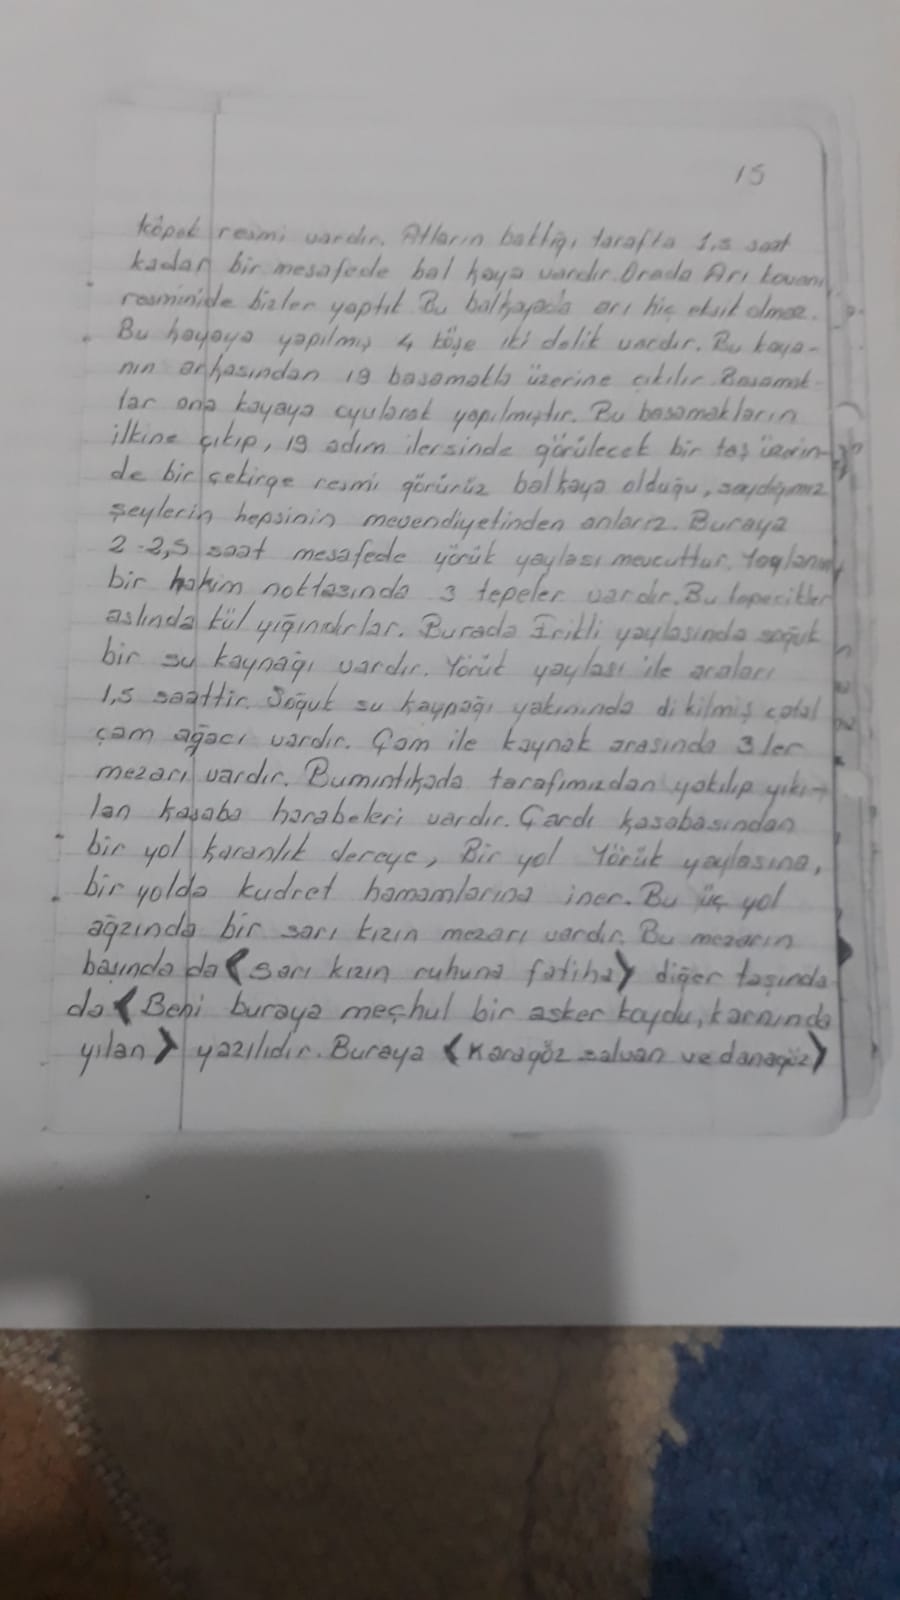 15
köpek resmi vardır. Atların baktığı tarafta 1,5 saat
kadar bir mesafede bal kaya vardır. Orada Arı kovanı
resminide bizler yaptık Bu balkayada arı hiç eksik olmaz.
Bu kayaya yapılmış 4 köşe iki delik vardır. Bu kaya-
nın arkasından 19 basamakla üzerine çıkılır. Basamak-
lar ana kayaya oyularak yapılmıştır. Bu basamakların
ilkine çıkıp, 19 adım ilersinde görülecek bir taş üzerin-
de bir çekirge resmi görürüz balkaya olduğu, saydığımız
şeylerin hepsinin mevcudiyetinden anlarız. Buraya
2-2,5 saat mesafede yörük yaylası mevcuttur. Yaylanın
bir hakim noktasında 3 tepeler vardır. Bu tepecikler
aslında kül yığınıdırlar. Burada Erikli yaylasında soğuk
bir su kaynağı vardır. Yörük yaylası ile araları
1,5 saattir. Soğuk su kaynağı yakınında dikilmiş çatal
çam ağacı vardır. Çam ile kaynak arasında 3 ler
mezarı vardır. Bumıntıkada tarafımızdan yakılıp yıkı-
lan kasaba harabeleri vardır. Çardı kasabasından
bir yol karanlık dereye, Bir yol Yörük yaylasına,
bir yolda kudret hamamlarına iner. Bu üç yol
ağzında bir sarı kızın mezarı vardır. Bu mezarın
başında da < Sarı kızın ruhuna fatiha > diğer taşında
da < Beni buraya meçhul bir asker koydu, karnında
yılan > yazılıdır. Buraya < Karagöz salvan ve danagöz >